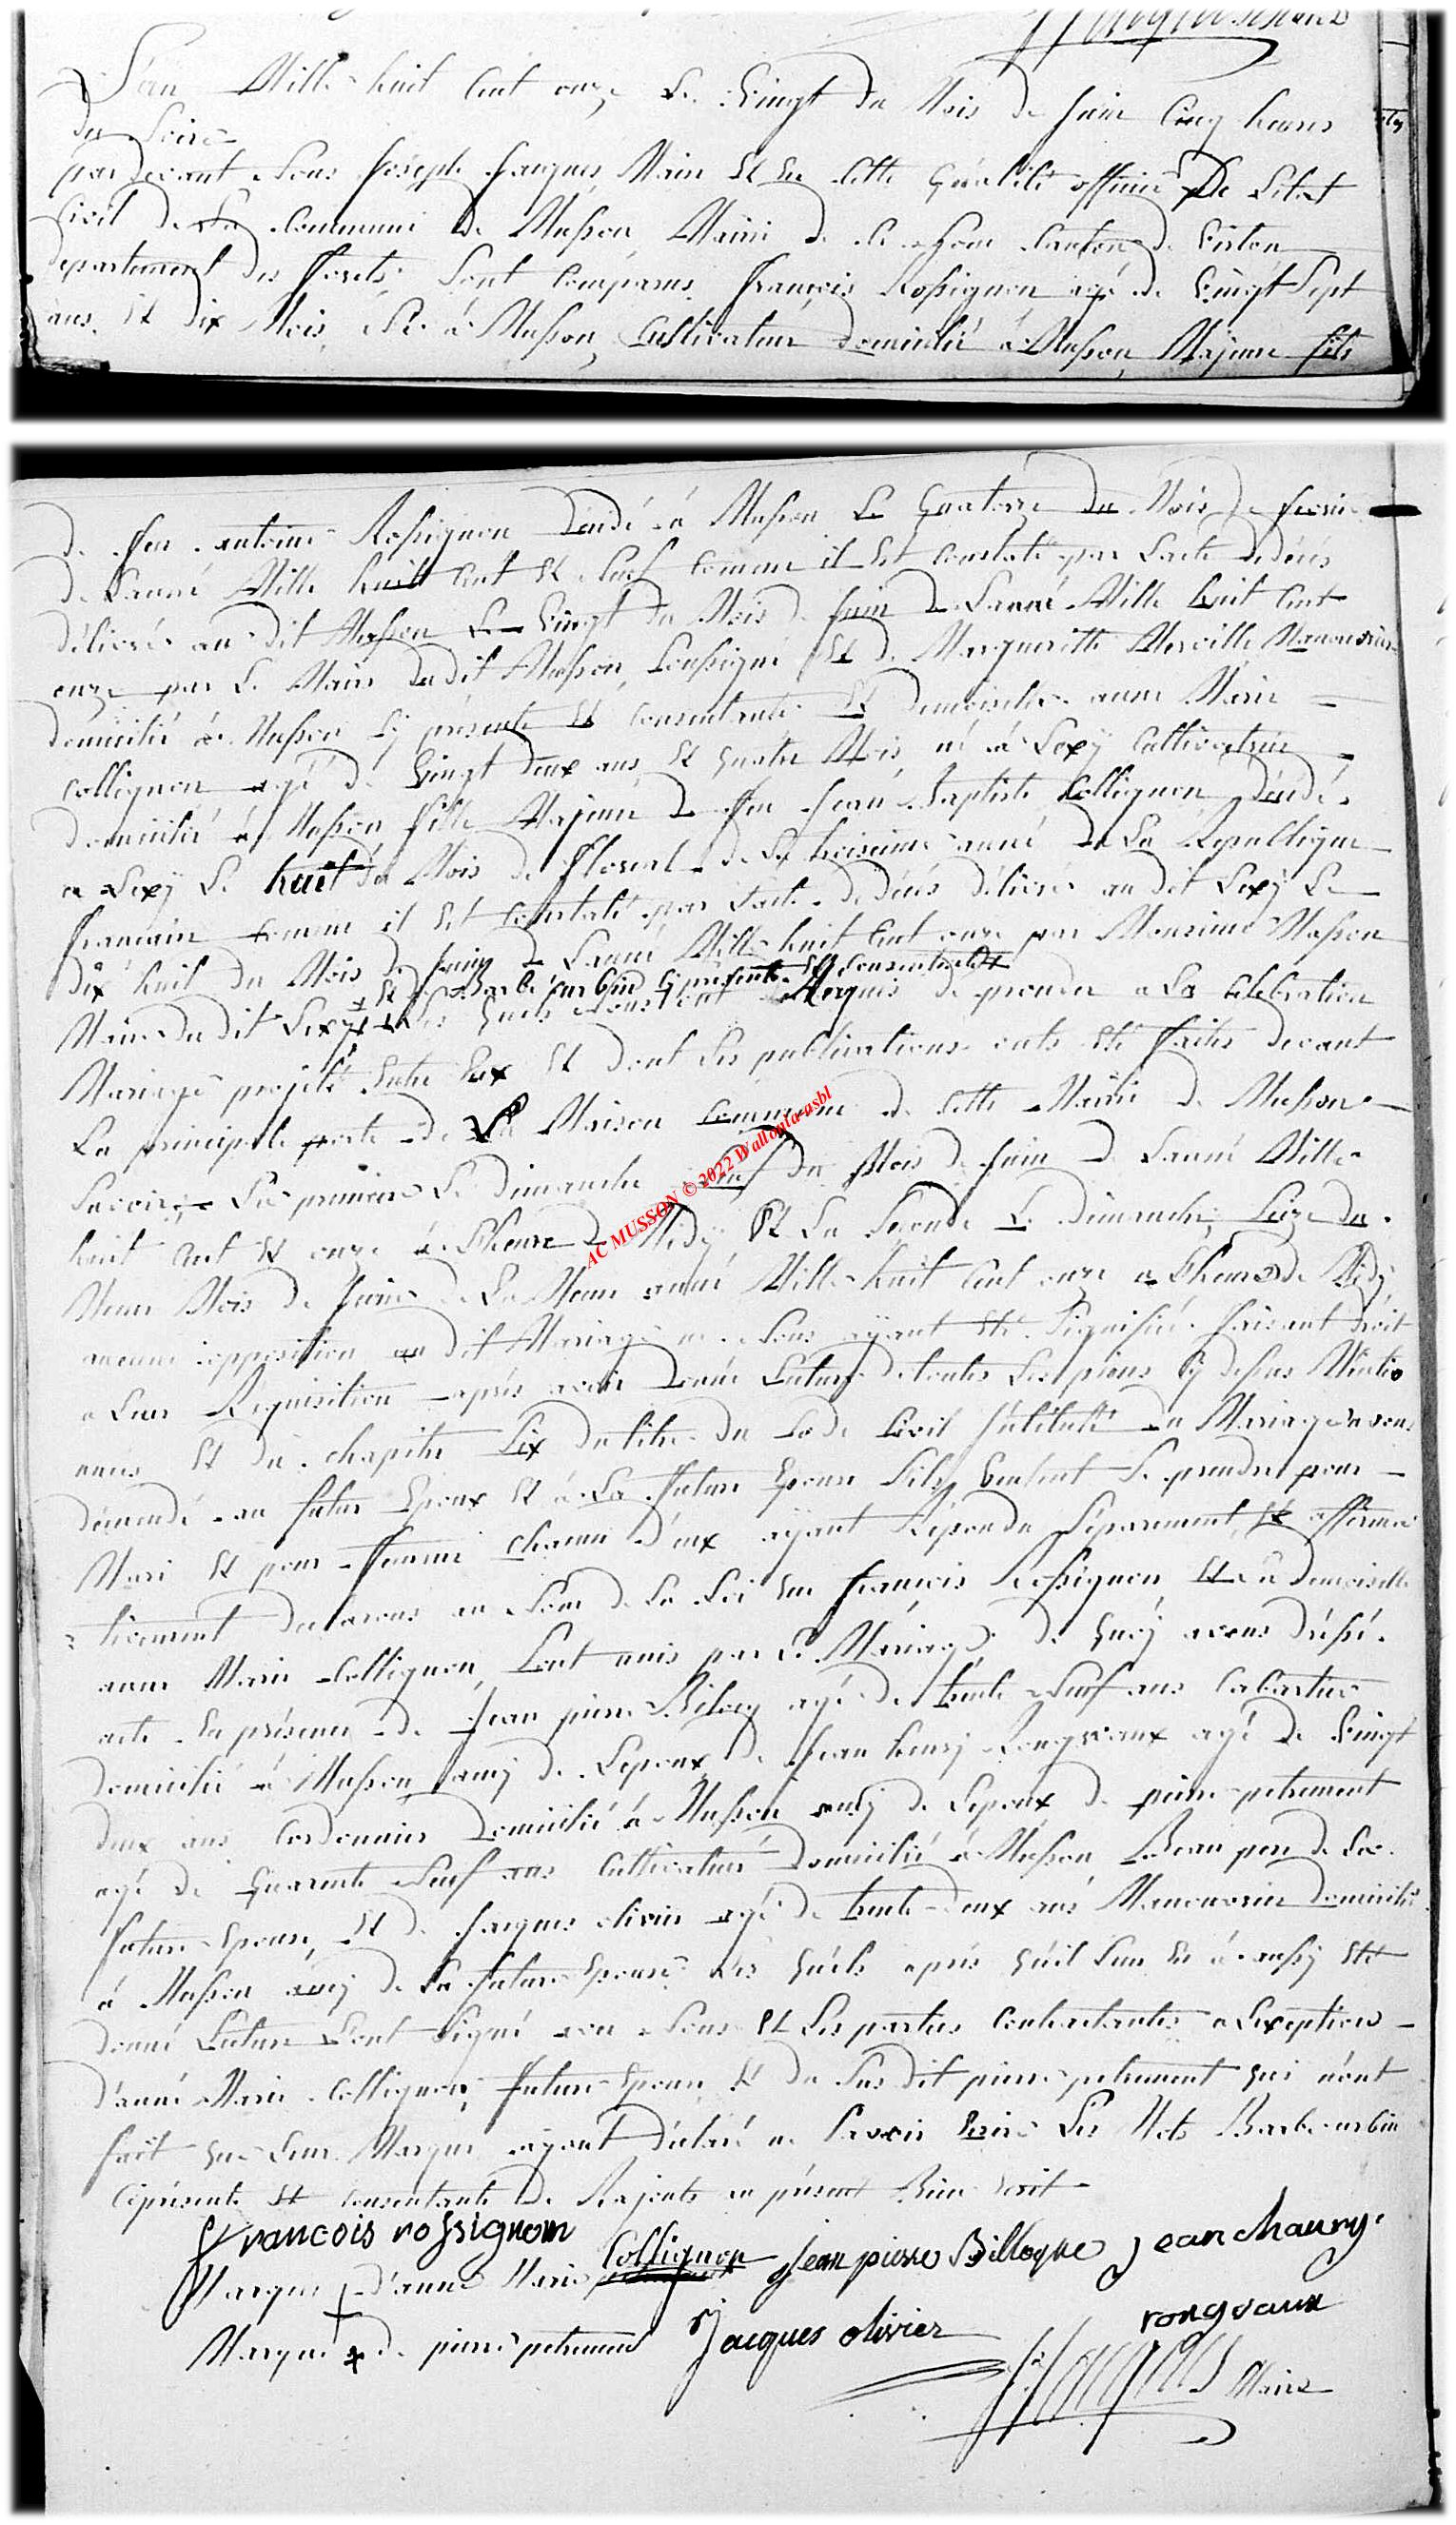 L'an Mille huit Cent onze Le Vingt du Mois de Juin Cinq heures
du Soire
pardevant Nous Joseph Jacques Maire Et En Cette Qualité officier De Létat
Civil de La Commune de Musson Mairie de Ce Nom Canton de Virton
département des Forets Sont Comparus François Rossignon agé de Vingt Sept
ans Et dix Mois Né à Musson, Cultivateur domicilié à Musson, Majeure fils
de feu antoine Rossignon décédé à Musson Le Quatorze du Mois de
de Lanné Mille huit Cent Et Neuf Comme il Est Constaté par Lacte de décés
délivré au dit Musson Le Vingt du Mois de Juin de Lanné Mille huit Cent
onze par Le Maire dudit Musson Soussigné Et de Margueritte Merville Manouvriere
domicilié à Musson Cy présente Et Consentante Et demoiselle anne Marie
Collignon agé de Vingt deux ans Et Quatre Mois né à Lexÿ Cultivatrice
domicilié à Musson fille Majeure de feu Jean Baptiste Collignon décédé
a Lexÿ Le huit du Mois de floreal de La troisieme année de La Republique
francaise Comme il Est Constaté par Lacte de décés délivré au dit Lexÿ Le
dix huit du Mois de Juin de Lanné Mille huit Cent onze par Monsieur Masson
Et de Barbe Curbin Cy présente Et Consentante
Maire du dit Lexÿ Les Quels Nous ont Requis de proceder a La Celebration
Mariage projeté Entre Eux Et dont Les publications onts Eté faites devant
La principale porte de La Maison Commune de Cette Mairie de Musson
Savoire La premiere Le dimanche Neuf du Mois de Juin de Lanné Mille
huit Cent Et onze à Lheure de Midÿ Et La Seconde Le dimanche Seize du
Meme Mois de Juin de La Meme anné Mille huit Cent onze a Lheure de Midÿ
aucune opposition au dit Mariage ne Nous aÿant Eté Signifié faisant droit
a Leur Requisition aprés avoir donné Lecture de toutes Les pieces Cy dessus Mentio
nnés Et du chapitre Six du titre du Code Civil Intitulé du Mariage avons
demandé au futur Epoux Et à La future Epouse Sils Veulent Se prendre pour
Mari Et pour femme chacun d'eux aÿant Répondu Séparement Et affirma
tivement declarons au Nom de La Loi que François Rossignon Et La demoiselle
anne Marie Collignon, Sont unis par Le Mariage, de Quoÿ avons dressé
acte En présence de Jean pierre Biloq agé de trente Neuf ans Cabartier
domicilié à Musson amÿ de Lepoux, de Jean henrÿ Rongveaux agé de Vingt
deux ans Cordonnier domicilié à Musson amÿ de Lepoux de pierre petrement
agé de Quarente Neuf ans Cultivateur domicilié à Musson Beau pere de La
future Epouse, Et de Jacques olivier agé de trente deux ans Manouvrier domicilié
à Musson amÿ de La future Epouse Les Quels aprés Quil Leur En à aussy Eté
donné Lecture Lont Signé avec Nous Et Les parties Contractantes a Lexeption
d'anne Marie Collignon, future Epouse Et du Susdit pierre petrement qui nont
fait que Leur Marque aÿant déclaré ne Savoir Ecrire Les Mots Barbe Curbin
Ciprésente Et Consentante de Rajoute au présent
francois rossignom
Collignon Jean pierre Billoque Jean chaury
Marque d'anne Marie
rongvaux
Marque de pierre petrement Jacques olivier
J Jacques Maire
AC MUSSON © 2022 Wallonia-asbl